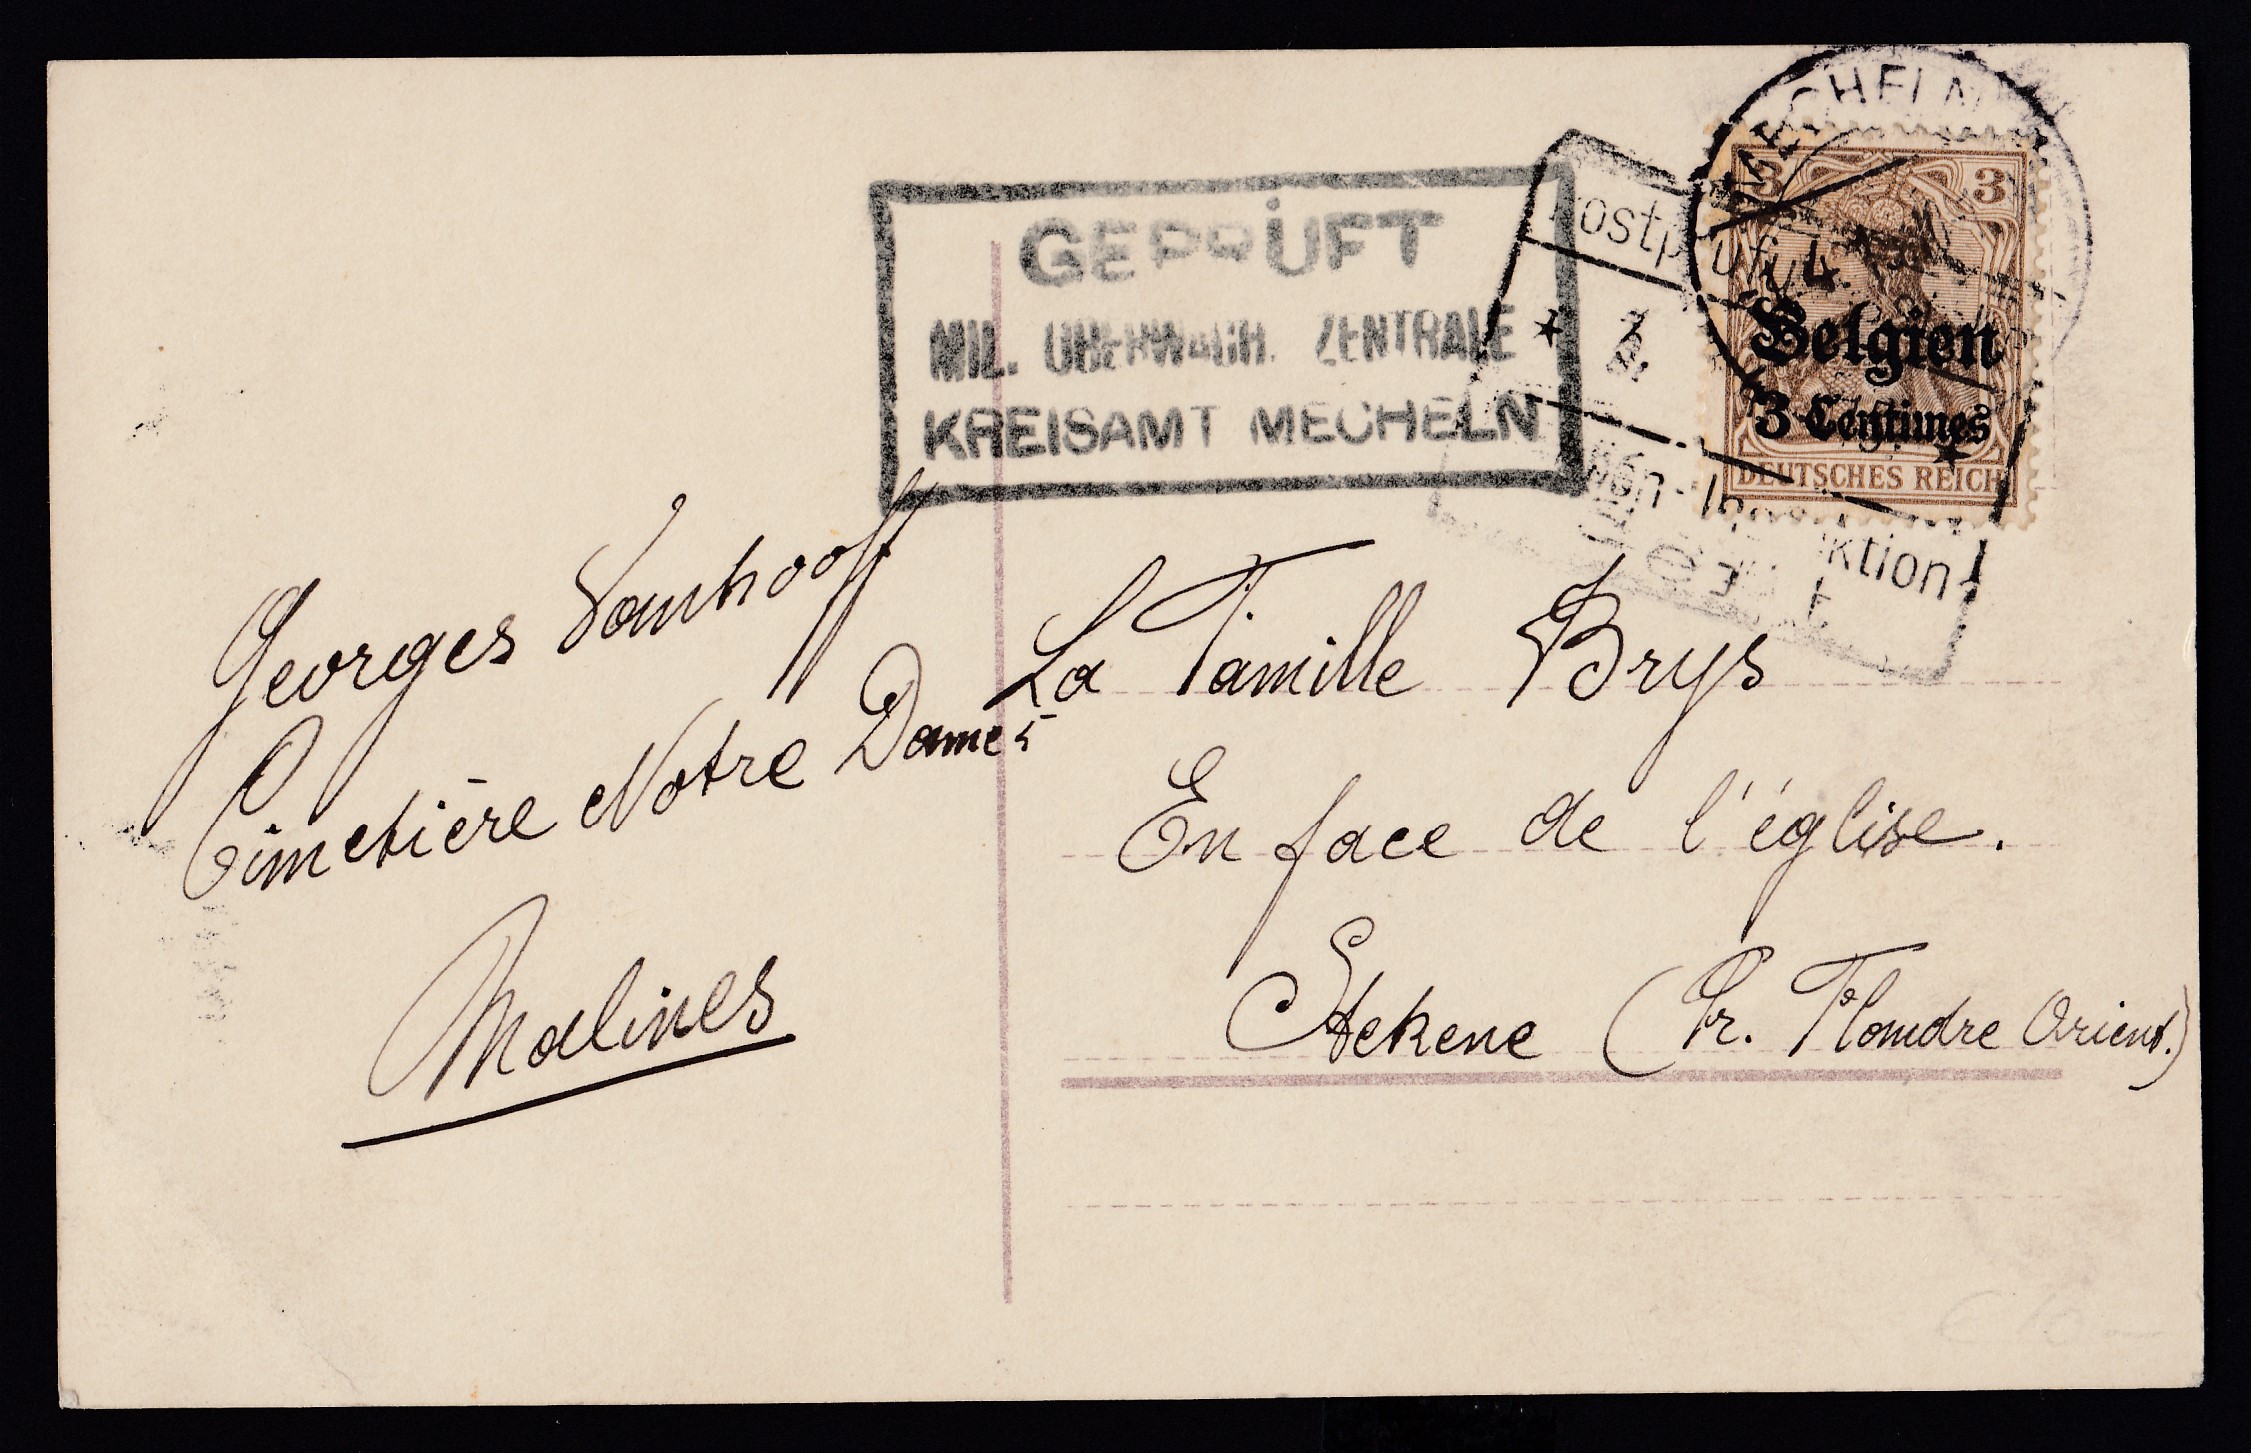 GEPRÜFT
MIL. ÜBERWACH. ZENTRALE
KREISAMT MECHELN
MECHELN
4
Postprüfungs
3 3
Belgien
3 Centimes
DEUTSCHES REICH
Georges Vanhooff
Cimetière Notre Dame
Malines
La Famille Brys
En face de l'église.
Stekene (Pr. Flandre Orient.)